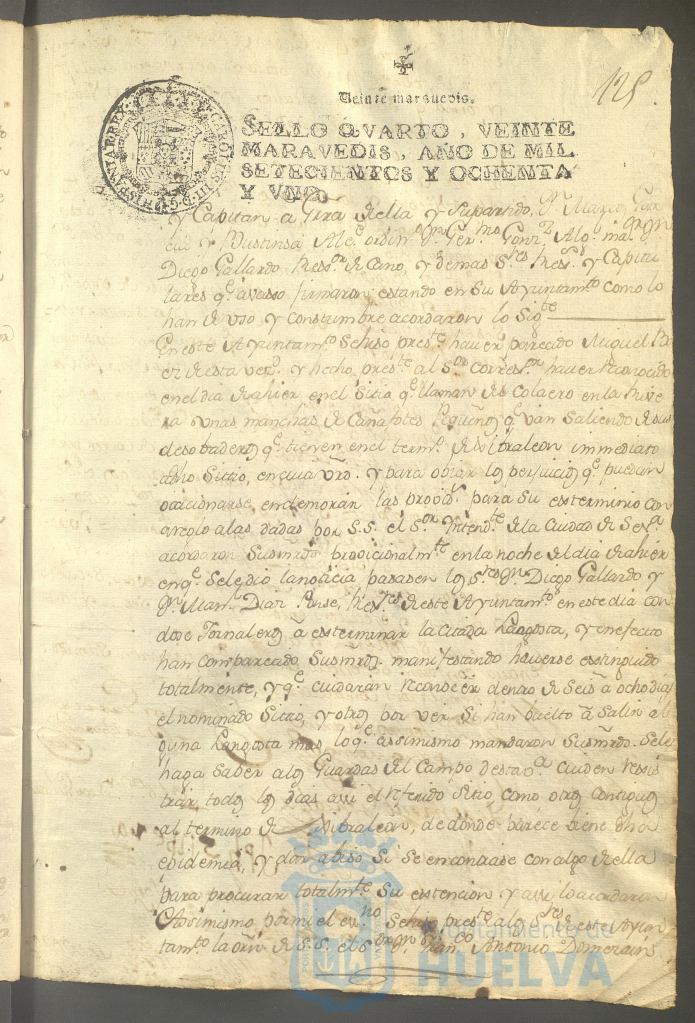 125.
Veinte maravedis.
SELLO QVARTO, VEINTE
MARAVEDIS, AÑO DE MIL
SETECIENTOS Y OCHENTA
Y VNO.
CAROLUS III D G HISPANIAR REX
y Capitan a Gra della y su partido,
Alcs ordins
Diego Gallardo de Cano, y demas Sres y Capitu
lares qe avaxo firmaron estando en su Ayuntamto como lo
han de uso y constumbre acordaron lo Sigte
En este Ayuntamto Se hiso preste haver parecido Miguel
de esta vez. y hecho preste al Sor Corresor haver reconocido
en el dia de ahier en el Sitio qe llaman de colaero en la
unas manchas de Cañafotes pequeños qe van saliendo de sus
desobaderos qe tienen en el termo de Xibraleon immediato
a dho Sitio, en cuia vrd. y para obiar los perjuicios qe puedan
ocacionarse, en demorar las provids para su exsterminio con
areglo a las dadas por S.S. el Sor Yntendte de la Ciudad de Seva
acordaron Susmrds provicionalmte en la noche del dia de ahier
en qe Se le dio la noticia pasasen los Sres Dn Diego Gallardo y
Dn Manl Diaz Ponse, de este Ayuntamto en este dia con
dose Jornaleros a exsterminar la citada Langosta, y en efecto
han compareado Susmrds manifestando haverse esstinguido
totalmente, y qe cuidaran reconoser dentro de Seis a ocho dias
el nominado Sitio, y otros por ver Si han buelto a Salir al
guna Langosta mas lo qe assimismo mandaron Susmrds. Se le
haga Saber a los Guardas del Campo de esta Va cuiden rexis
trar todos los dias assi el referido Sitio, como otros contiguos
al termino de Xibraleon, de donde parece biene dha
epidemia, y dar abiso Si se encontrase con algo de ella
para procurar totalmte Su esstencion y assi lo acordaron
Assimismo por mi el eno Se hiso preste a los Sres de este Ayun
tamto la orn de S.S. el Sor Dn Franco Antonio Domezain
Ayuntamiento de
HUELVA